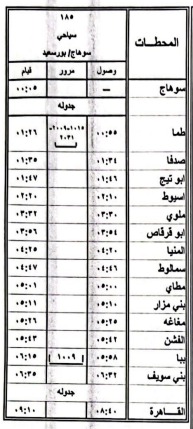 المحطات
١٨٥
سياحي
سوهاج/بورسعيد
وصول
مرور
قيام
سوهاج
—
٠٠:٠٥
جدوله
طما
٠٠:٥٥
٢٠٣١
٠١:٢٦
صدفا
٠١:٣٤
٠١:٣٥
ابو تيج
٠١:٤٦
٠١:٤٧
اسيوط
٠٢:١٠
٠٢:٢٠
ملوي
٠٣:٣٠
٠٣:٣٢
ابو قرقاص
٠٣:٥٤
٠٣:٥٦
المنيا
٠٤:٢٠
٠٤:٢٥
سمالوط
٠٤:٤٦
٠٤:٤٧
مطاي
٠٥:٠٠
٠٥:٠١
بني مزار
٠٥:١٠
٠٥:١١
مغاغه
٠٥:٢٥
٠٥:٢٦
الفشن
٠٥:٤٢
٠٥:٤٣
ببا
٠٥:٥٨
١٠٠٩
٠٦:١٥
بني سويف
٠٦:٣٢
٠٦:٣٥
جدوله
القاهرة
٠٨:٤٠
٠٩:١٠